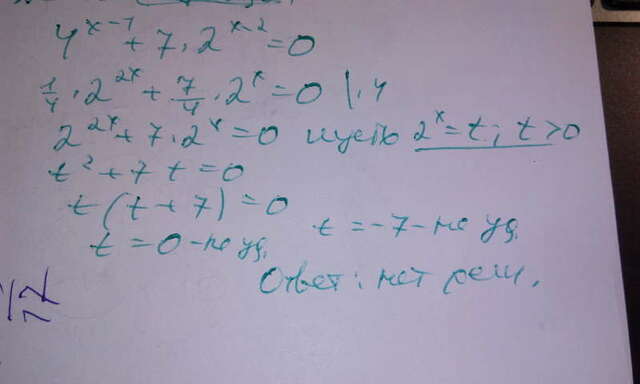 4^(x-1) + 7 · 2^(x-2) = 0
1/4 · 2^(2x) + 7/4 · 2^x = 0 | · 4
2^(2x) + 7 · 2^x = 0 пусть 2^x = t; t > 0
t² + 7t = 0
t(t + 7) = 0
t = 0 - не уд. t = -7 - не уд.
Ответ: нет реш.